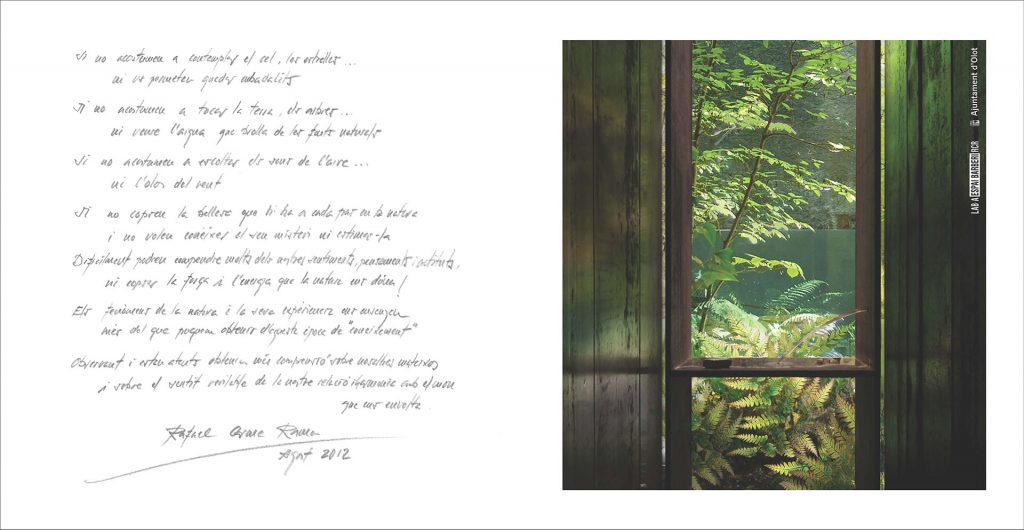 Si no acostumem a contemplar el cel, les estrelles ...
ni ve permeten quedar embadalits
Si no acostumem a tocar la terra, els arbres ...
ni veure l'aigua que brolla de les fonts naturals
Si no acostumem a escoltar els sons de l'aire ...
ni l'olor del vent
Si no copsem la bellesa que hi ha a cada part en la natura
i no volem conèixer el seu misteri ni estimar-la
Difícilment podrem comprendre molts dels nostres sentiments, pensaments i actituds,
ni copsar la força i l'energia que la natura ens dóna!
Els fenòmens de la natura i la seva experiència ens ensenyen
més del que puguem obtenir d'aquesta època de "coneixement"
Observant i estan atents obtenim més comprensió sobre nosaltres mateixos
i sobre el sentit veritable de la nostra relació harmònica amb el món
que ens envolta.
Rafael Carme Ramon
Agost 2012
LAB A ESPAI BARBERÍ RCR
Ajuntament d'Olot